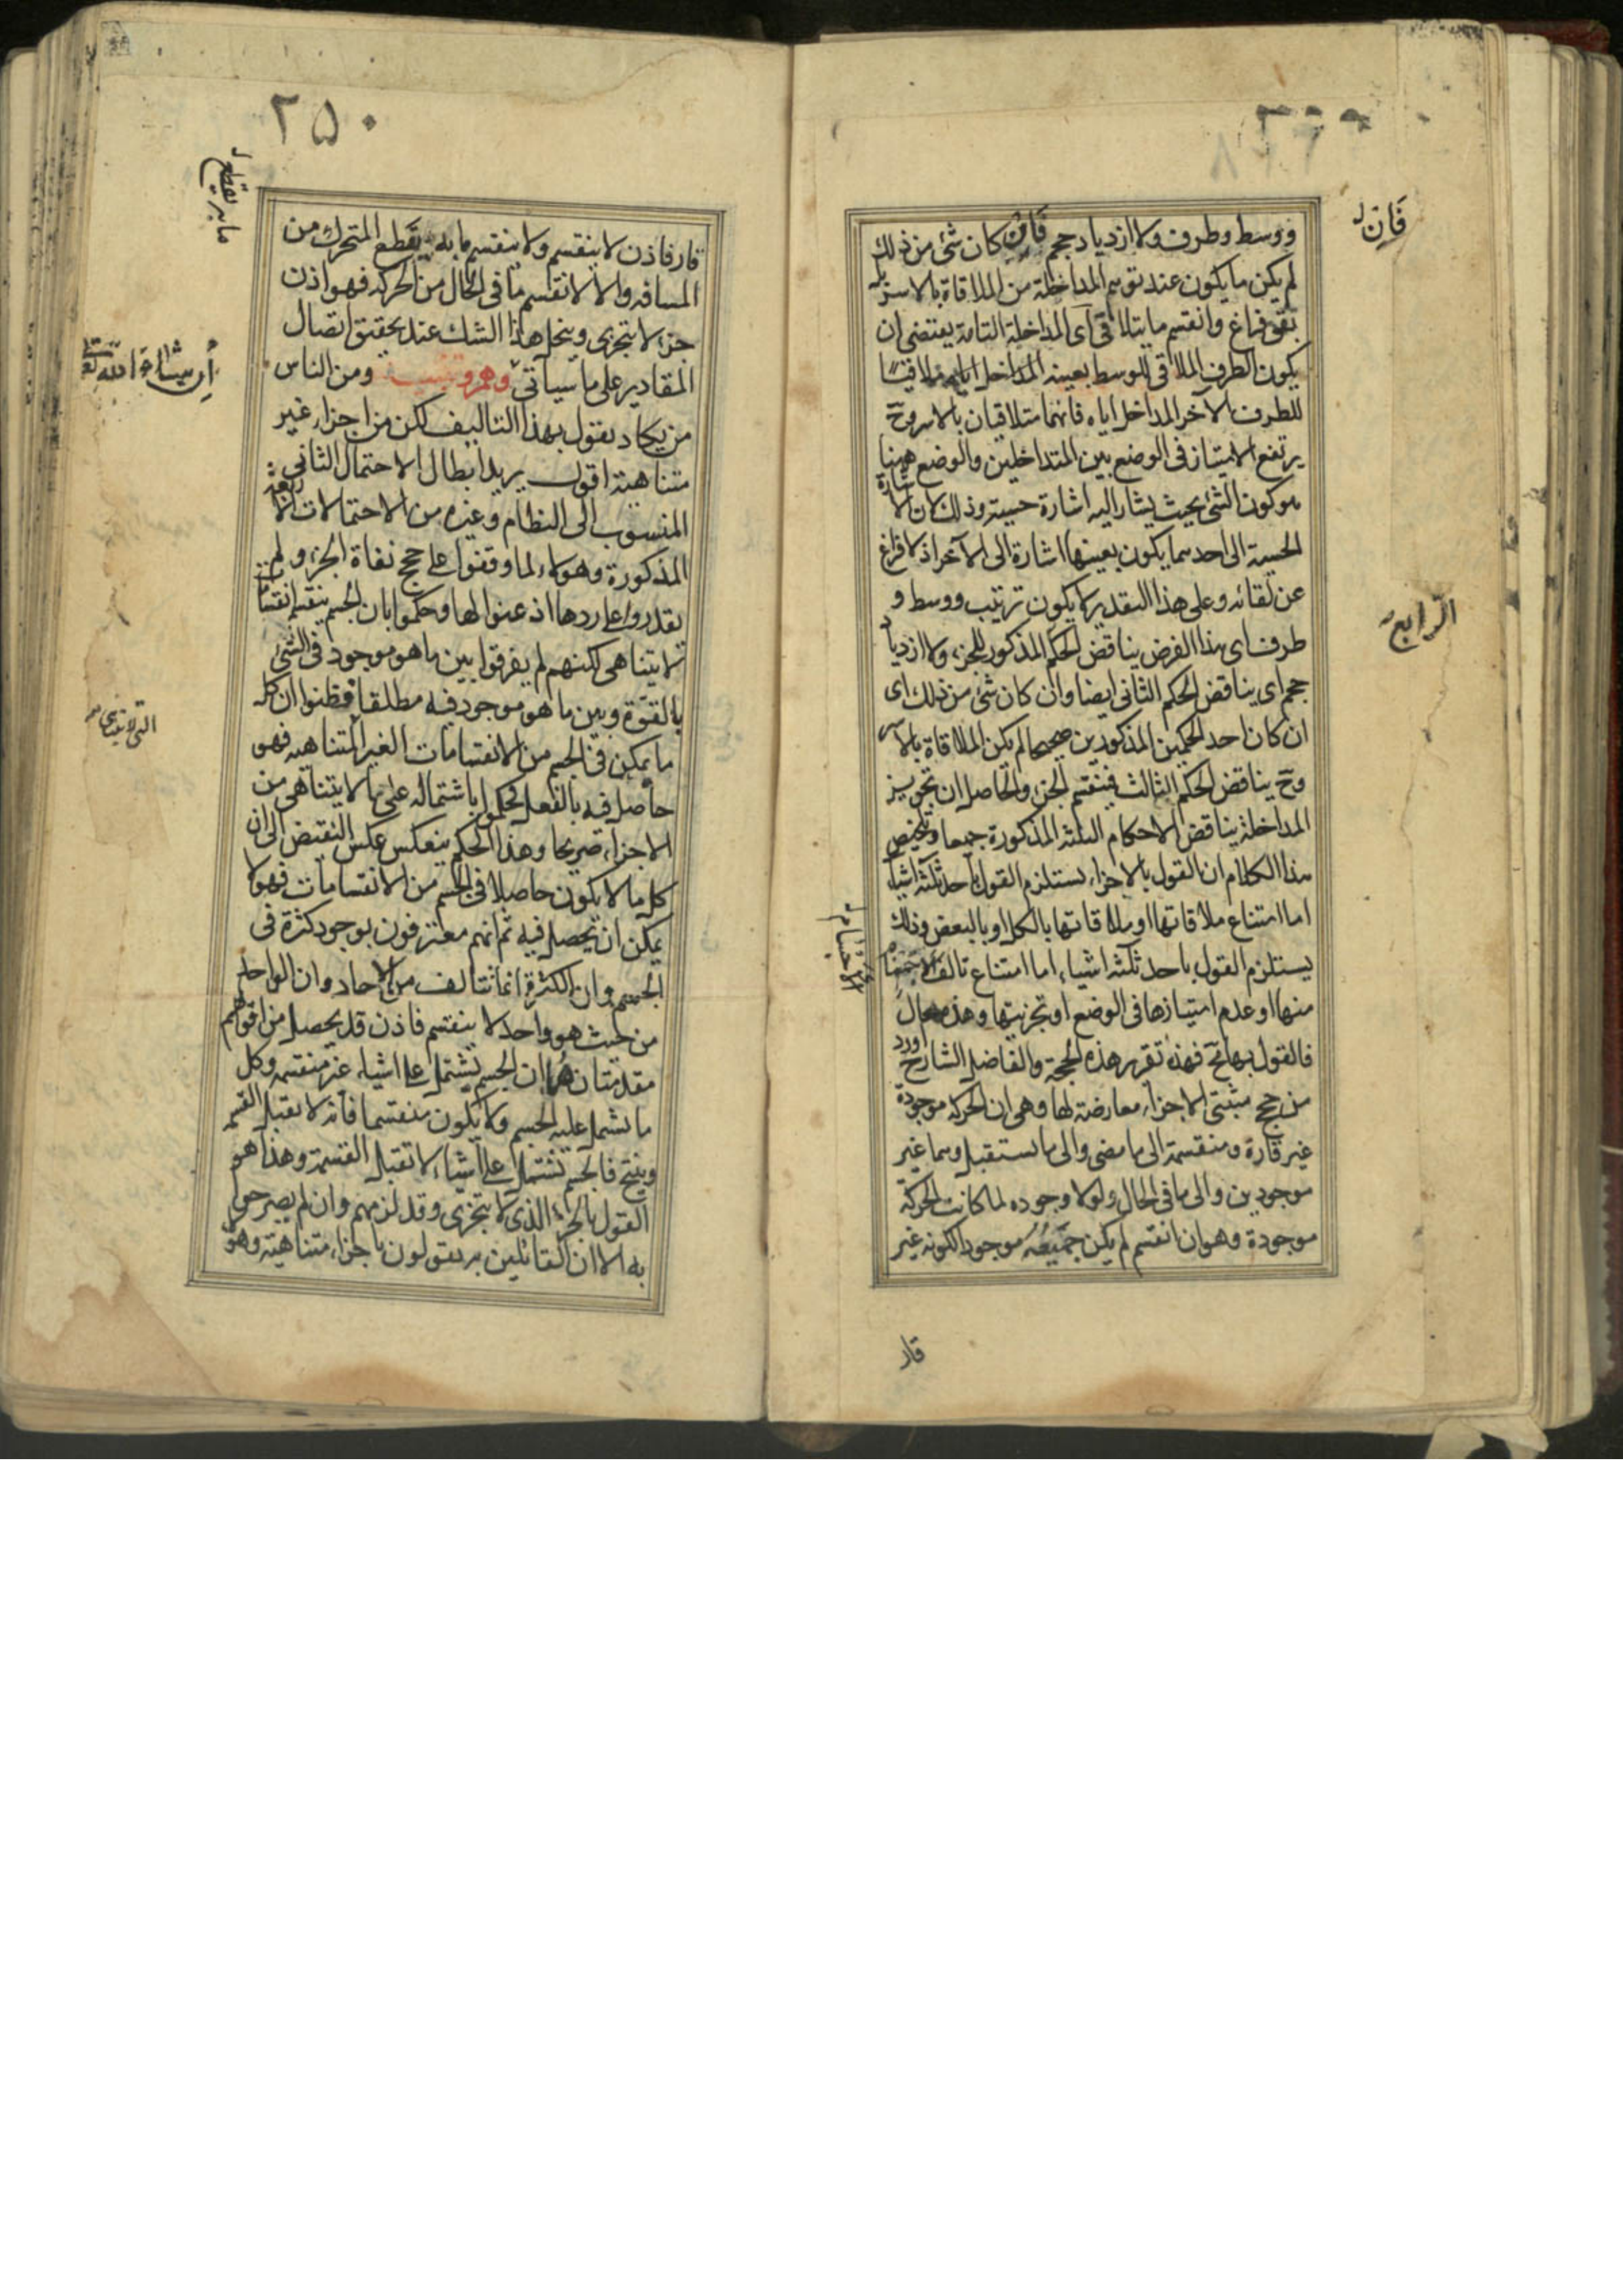 فان
ووسط وطرف ولا ازدياد حجم فان كان شئ من ذلك
لم يكن ما يكون عند توهم المداخلة من الملاقاة بالاسر بل
بقى فراغ وانقسم ما يتلاقى اى المداخلة التامة يقتضى ان
يكون الطرف الملاقى للوسط بعينه المداخل اياه ملاقيا
للطرف الآخر المداخل اياه فانهما متلاقيان بالاسر وح
يرتفع الامتياز فى الوضع بين المتداخلين والوضع ههنا
هو كون الشئ بحيث يشار اليه اشارة حسية وذلك لان الاشارة
الحسية الى احدهما يكون بعينها اشارة الى الآخر اذ لا فراغ
عن لقائه وعلى هذا التقدير لا يكون ترتيب ووسط و
الرابع
طرف اى هذا الفرض يناقض الحكم المذكور للجزء ولا ازدياد
حجم اى يناقض الحكم الثانى ايضا وان كان شئ من ذلك اى
ان كان احد الحكمين المذكورين صحيحا لم يكن الملاقاة بالاسر
وح يناقض الحكم الثالث فينقسم الجزء والحاصل ان تجويز
المداخلة يناقض الاحكام الثلثة المذكورة جميعا وتلخيص
هذا الكلام ان القول بالاجزاء يستلزم القول باحد ثلثة اشياء
اما امتناع ملاقاتها او ملاقاتها بالكل او بالبعض وذلك
يستلزم القول باحد ثلثة اشياء اما امتناع تالف الاجسام
الاجسام
منها او عدم امتيازها فى الوضع او تجزيتها وهذه محال
فالقول بها مح فهذه تقرير هذه الحجة والفاضل الشارح اورد
من حجج مثبتى الاجزاء معارضة لها وهى ان الحركة موجودة
غير قارة ومنقسمة الى ما مضى والى ما يستقبل وهما غير
موجودين والى ما فى الحال ولولا وجوده لما كانت الحركة
موجودة وهو ان انقسم لم يكن جميعه موجودا لكونه غير
قار
٢٥٠
ما به يقطع
قار فاذن لا ينقسم ولا ينقسم ما به يقطع المتحرك من
المسافة والا لانقسم ما فى الحال من الحركة فهو اذن
جزء لا يتجزى وينحل هذا الشك عند تحقيق اتصال
المقادير على ما سيأتى وهم وتنبيه ومن الناس
ان شاء الله تعالى
من يكاد يقول بهذا التاليف لكن من اجزاء غير
متناهية اقول يريد ابطال الاحتمال الثانى
المنسوب الى النظام وغيره من الاحتمالات الاربعة
المذكورة وهؤلاء لما وقفوا على حجج نفاة الجزء ولم
يقدروا على ردها اذعنوا لها وحكموا بان الجسم ينقسم انقسامات
لا يتناهى لكنهم لم يفرقوا بين ما هو موجود فى الشئ
بالقوة وبين ما هو موجود فيه مطلقا فظنوا ان كل
التى لا يتناهى
ما يمكن فى الجسم من الانقسامات الغير المتناهية فهو
حاصل فيه بالفعل فحكموا باشتماله على ما لا يتناهى من
الاجزاء صريحا وهذا الحكم ينعكس عكس النقيض الى ان
كل ما لا يكون حاصلا فى الجسم من الانقسامات فهو لا
يمكن ان يحصل فيه ثم انهم معترفون بوجود كثرة فى
الجسم وان الكثرة انما تتالف من الآحاد وان الواحد
من حيث هو واحد لا ينقسم فاذن قد يحصل من اقوالهم
مقدمتان هما ان الجسم يشتمل على اشياء غير منقسمة وكل
ما يشتمل عليه الجسم ولا يكون منقسما فانه لا يقبل القسمة
وينتج فالجسم يشتمل على اشياء لا تقبل القسمة وهذا هو
القول بالجزء الذى لا يتجزى وقد لزمهم وان لم يصرحوا
به الا ان القائلين به يقولون باجزاء متناهية وهؤ